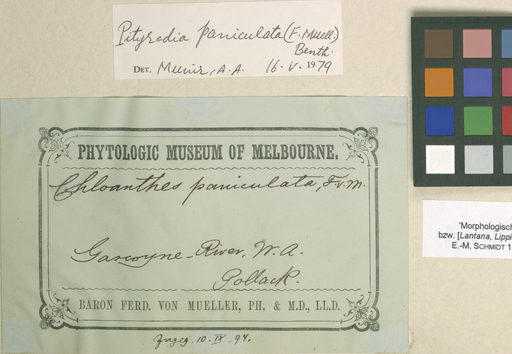 Pityrodia paniculata (F. Muell.)
Benth.
DET. Munir, A.A. 16. V. 1979
PHYTOLOGIC MUSEUM OF MELBOURNE.
Chloanthes paniculata, F.v.M.
Gascoyne-River, W. A.
Pollack.
BARON FERD. VON MUELLER, PH. & M.D., LL.D.
10. IX. 94.
'Morphologisch
bzw. [Lantana, Lippi
E.-M. SCHMIDT 1